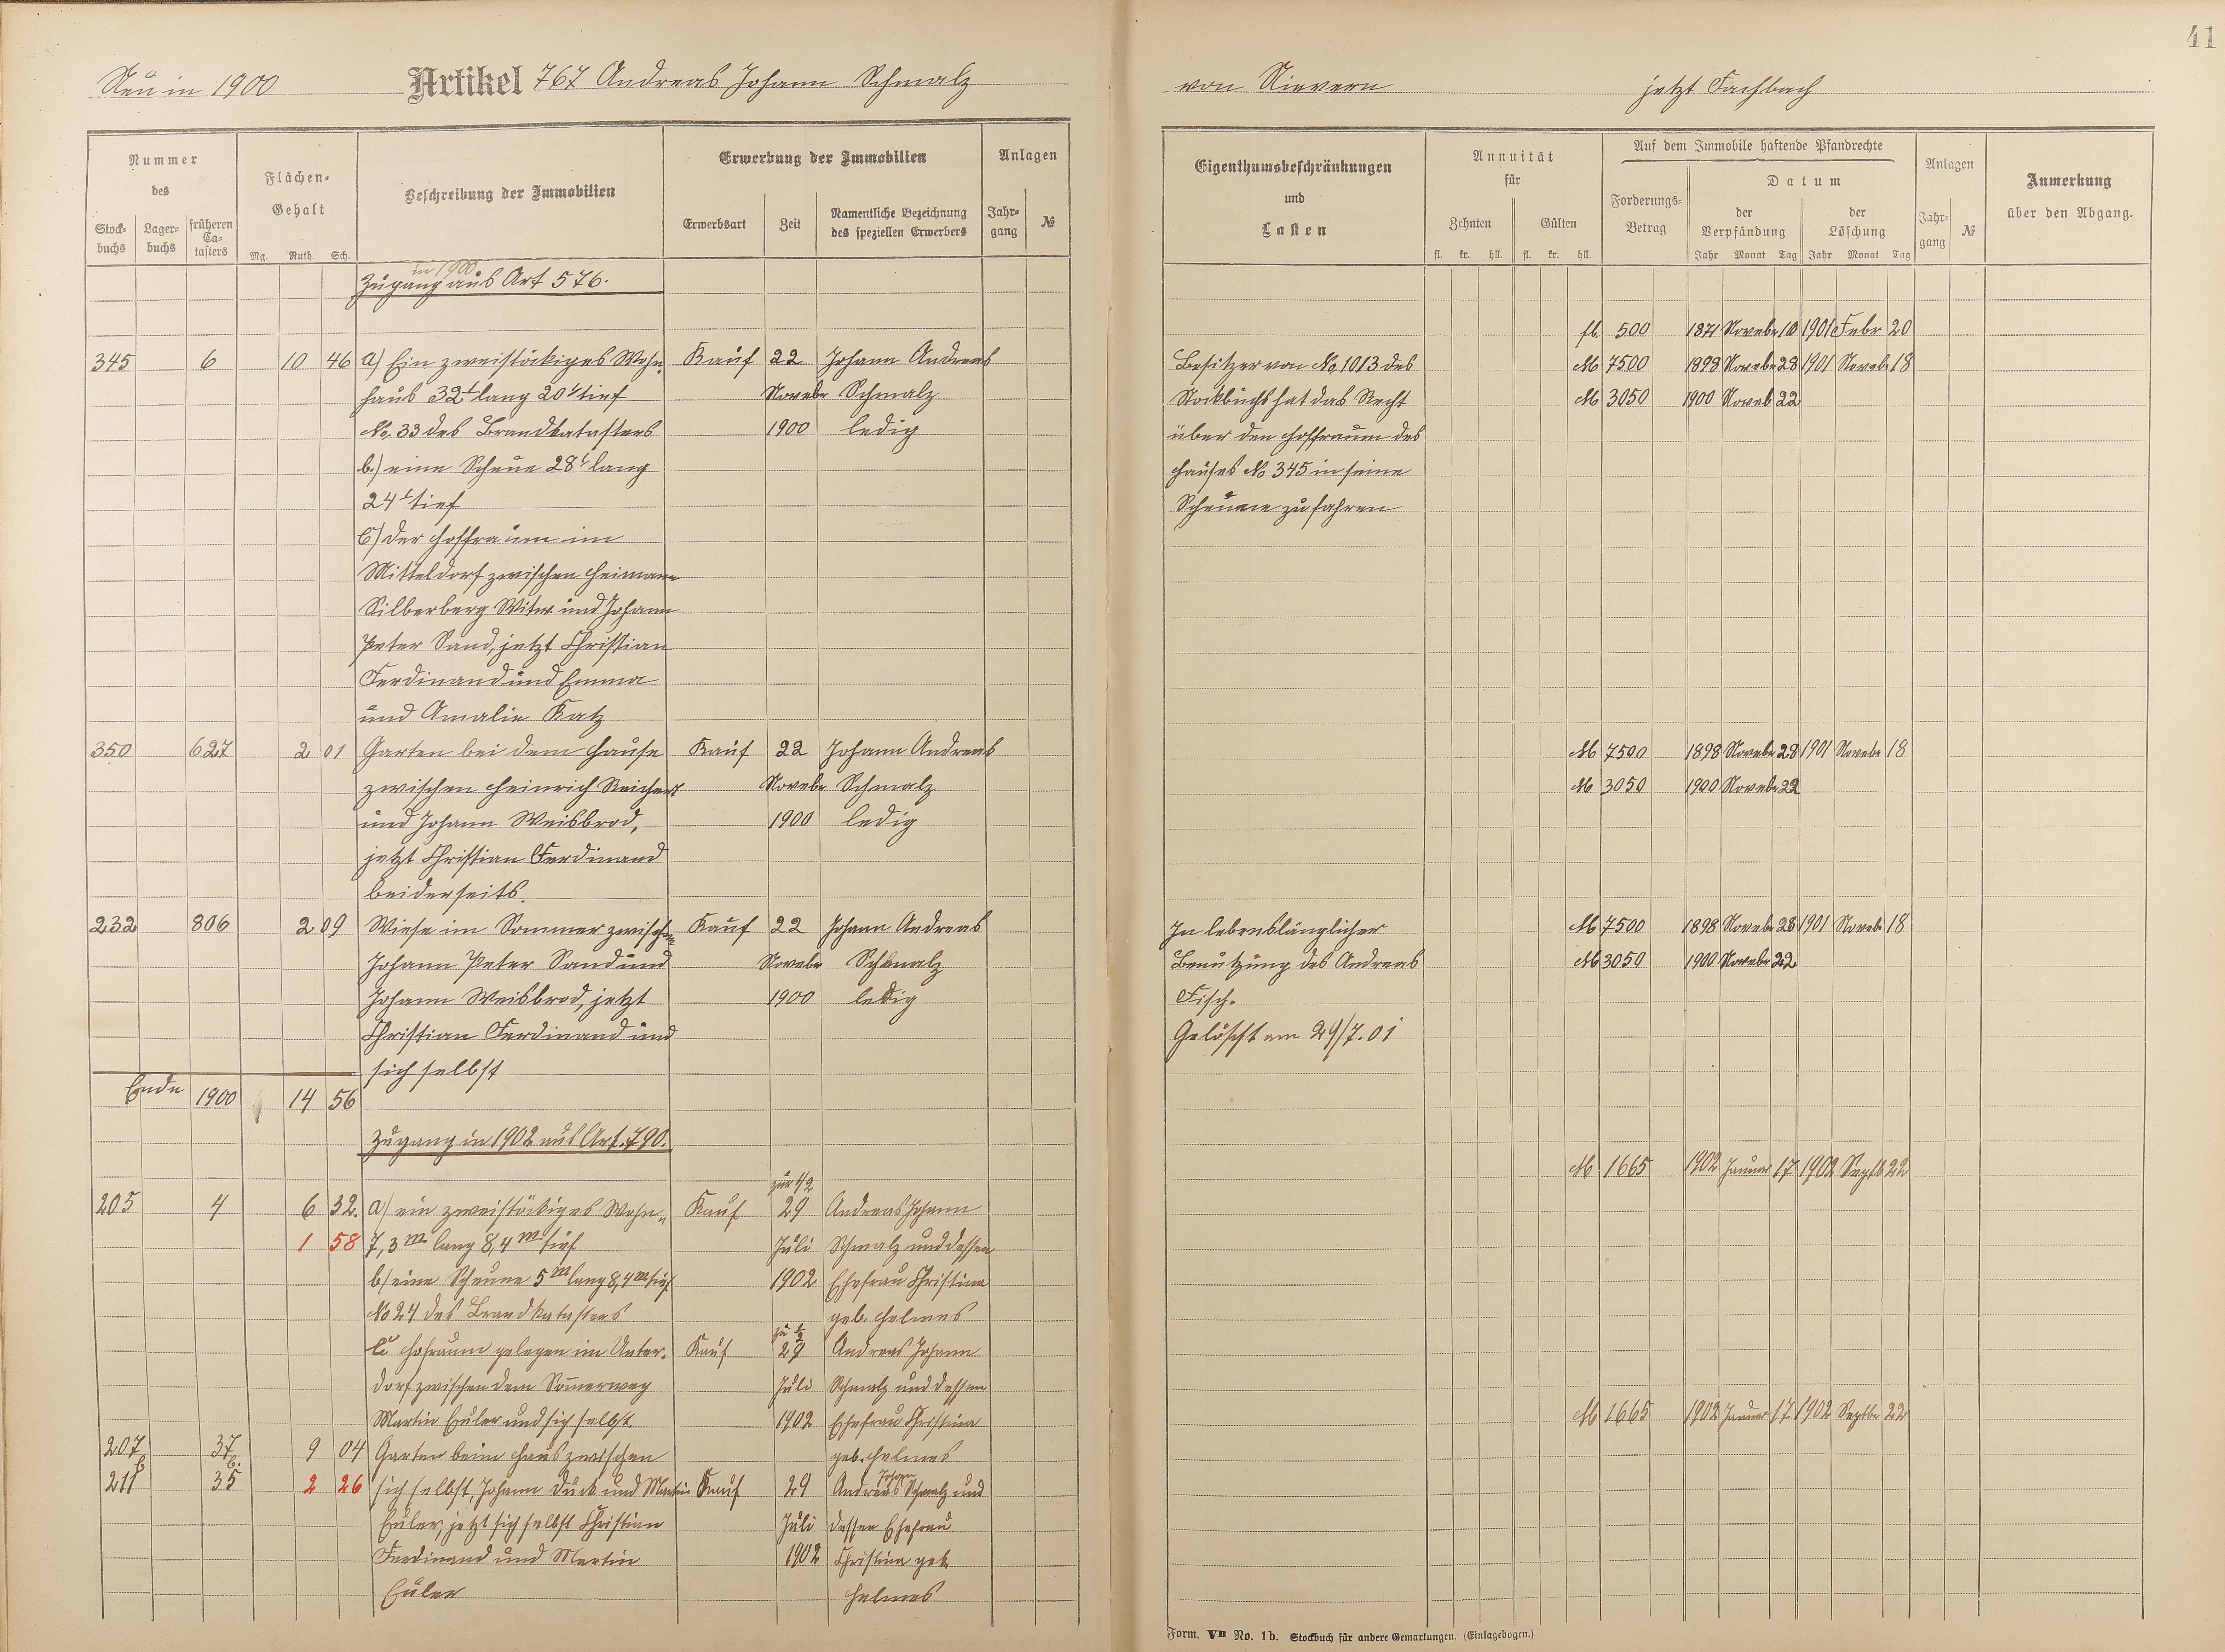 41
Neu in 1900 Artikel 767 Andreas Johann Schmalz
von Nievern jetzt Fachbach
Nummer
des
Stock-
buchs
Lager-
buchs
früheren
Ca-
tasters
Flächen-
Gehalt
Mg. Ruth. Sch.
Beschreibung der Immobilien
Erwerbung der Immobilien
Erwerbsart
Zeit
Namentliche Bezeichnung
des speziellen Erwerbers
Anlagen
Jahr-
gang
№
Eigenthumsbeschränkungen
und
Lasten
Annuität
für
Zehnten
Gülten
fl. kr. hll. fl. kr. hll.
Auf dem Immobile haftende Pfandrechte
Forderungs-
Betrag
Datum
der
Verpfändung
der
Löschung
Jahr Monat Tag Jahr Monat Tag
Anlagen
Jahr-
gang
№
Anmerkung
über den Abgang.
in 1900
Zugang aus Art 576.
fl. 500 1871 Novebr 10 1901 Febr 20
345 6 10 46 a) Ein zweistöckiges Wohn- Kauf 22 Johann Andreas
haus 32' lang 20' tief Novebr Schmalz
No. 33 des Brandkatasters 1900 ledig
b.) eine Scheue 28' lang
24' tief
c) der Hoffraum im
Mitteldorf zwischen Heimann
Silberberg Witw und Johann
Peter Sand, jetzt Christian
Ferdinand und Emma
und Amalie Katz
Besitzer von No 1013 des M 7500 1898 Novebr 28 1901 Novebr 18
Stockbuchs hat das Recht M 3050 1900 Noveb 22
über den Hoffraum des
Hauses No 345 in seine
Scheune zu fahren
350 627 2 01 Garten bei dem Hause Kauf 22 Johann Andreas
zwischen Heinrich Reichert Novebr Schmalz
und Johann Weisbrod, 1900 ledig
jetzt Christian Ferdinand
beiderseits.
M 7500 1898 Novebr 28 1901 Novebr 18
M 3050 1900 Novebr 22
232 806 2 09 Wiese im Sommer zwischen Kauf 22 Johann Andreas
Johann Peter Sand und Novebr Schmalz
Johann Weisbrod, jetzt 1900 ledig
Christian Ferdinand und
sich selbst
In lebenslänglicher M 7500 1898 Novebr 28 1901 Novebr 18
Benutzung des Andreas M 3050 1900 Novebr 22
Fisch.
Gelöscht am 29/7.01
Ende 1900 14 56
Zugang in 1902 aus Art. 790.
M 1665 1902 Januar 17 1902 Septb 22
zur 1/2
205 4 6 32. a) ein zweistöckiges Wohn- Kauf 29 Andreas Johann
1 58 7,3 m lang 8,4 m tief Juli Schmalz und dessen
b) eine Scheune 5 m lang 8,4 m tief 1902 Ehefrau Christina
No 24 des Brandkatasters geb. Helmes
zu 1/2
c Hofraum gelegen im Unter- Kauf 29 Andreas Johann
dorf zwischen dem Sommerweg Juli Schmalz und dessen
Martin Euler und sich selbst. 1902 Ehefrau Christina
M 1665 1902 Januar 17 1902 Septbr 22
207 37 9 04 Garten beim Haus zwischen geb. Helmes
211 35 2 26 sich selbst, Johann Duck und Martin Kauf 29 Andreas Johann Schmalz und
Euler, jetzt sich selbst Christian Juli dessen Ehefrau
Ferdinand und Martin 1902 Christina geb.
Euler Helmes
Form. VB No. 1b. Stockbuch für andere Gemarkungen. (Einlagebogen.)